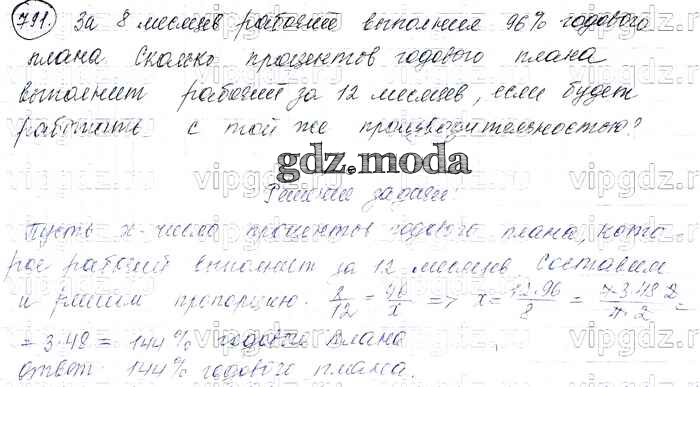 791. За 8 месяцев рабочий выполнил 96% годового
плана Сколько процентов годового плана
выполнит рабочий за 12 месяцев, если будет
работать с той же производительностью?
gdz.moda
Решение задачи:
Пусть x - число процентов годового плана, кото
рое рабочий выполнит за 12 месяцев. Составим
и решим пропорцию. 8/12 = 96/x => x = 12·96/8 = 4·3·48·2/4·2 =
= 3·48 = 144% годового плана
Ответ: 144% годового плана.